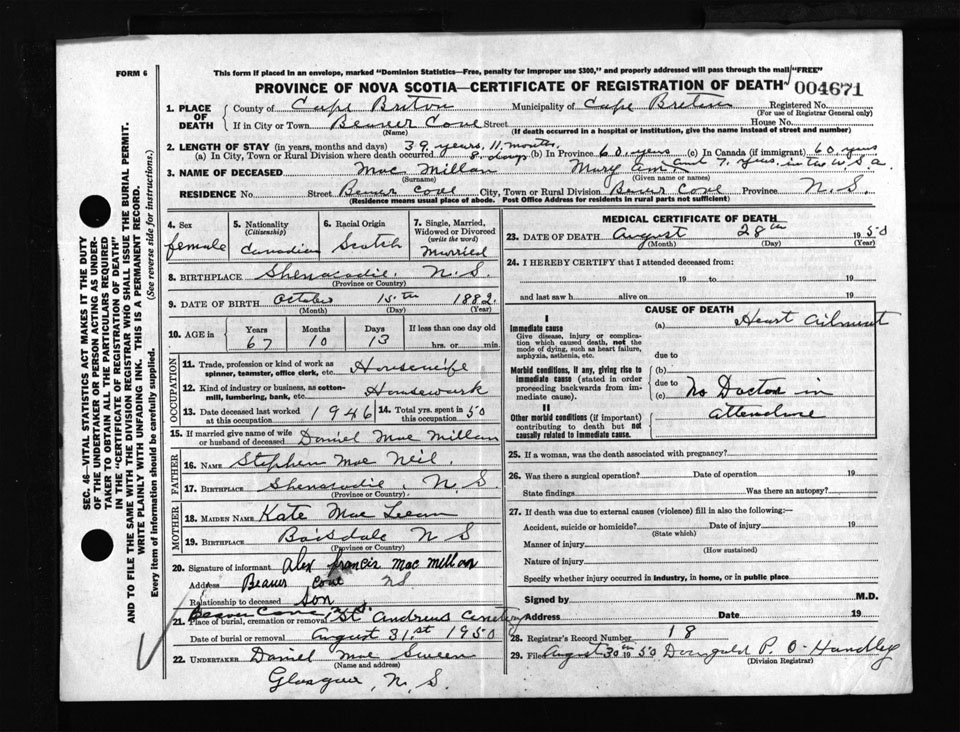 FORM 6
This form if placed in an envelope, marked "Dominion Statistics—Free, penalty for improper use $300," and properly addressed will pass through the mail "FREE"
PROVINCE OF NOVA SCOTIA—CERTIFICATE OF REGISTRATION OF DEATH 004671
1. PLACE OF DEATH County of Cape Breton Municipality of Cape Breton Registered No.
(For use of Registrar General only)
If in City or Town Beaver Cove Street House No.
(Name) (If death occurred in a hospital or institution, give the name instead of street and number)
2. LENGTH OF STAY (in years, months and days) 39 years, 11 months,
(a) In City, Town or Rural Division where death occurred 8 days (b) In Province 60 years (c) In Canada (if immigrant) 60 yens
and 7 yens. in the U.S.a.
3. NAME OF DECEASED Mac Millan Mary Ann
(Surname) (Given name or names)
RESIDENCE No Street Bever Cove City, Town or Rural Division Bever Cove Province N.S.
(Residence means usual place of abode. Post Office Address for residents in rural parts not sufficient)
4. Sex female
5. Nationality (Citizenship) Canadian
6. Racial Origin Scotch
7. Single, Married, Widowed or Divorced (write the word) Married
8. BIRTHPLACE Shenacadie. N.S.
(Province or Country)
9. DATE OF BIRTH October 15th 1882.
(Month) (Day) (Year)
10. AGE in Years Months Days If less than one day old
67 10 13 hrs. or min.
OCCUPATION
11. Trade, profession or kind of work as spinner, teamster, office clerk, etc. Housewife
12. Kind of industry or business, as cotton-mill, lumbering, bank, etc. Housewurk
13. Date deceased last worked at this occupation 1946 14. Total yrs. spent in this occupation 50
15. If married give name of wife or husband of deceased Daniel Mac Millan
FATHER
16. NAME Stephen Mac Neil.
17. BIRTHPLACE Shenacadie, N.S.
(Province or Country)
MOTHER
18. MAIDEN NAME Kate Mac Lean
19. BIRTHPLACE Boisdale N S
(Province or Country)
20. Signature of informant Alex francis Mac Millan
Address Beaver Cove NS
Relationship to deceased Son
Beaver Cove N.S.
21. Place of burial, cremation or removal St Andrews Cemetery
Date of burial or removal August 31.st 1950
22. UNDERTAKER Daniel Mac Sween
(Name and address)
Glasgow, N.S.
MEDICAL CERTIFICATE OF DEATH
23. DATE OF DEATH August 28th 1950
(Month) (Day) (Year)
24. I HEREBY CERTIFY that I attended deceased from:
19 to 19
and last saw h alive on 19
CAUSE OF DEATH
I
Immediate cause
Give disease, injury or complication which caused death, not the mode of dying, such as heart failure, asphyxia, asthenia, etc.
(a) Heart Ailment
due to
Morbid conditions, if any, giving rise to immediate cause (stated in order proceeding backwards from immediate cause).
(b)
due to
(c) No Doctor in
attendence
II
Other morbid conditions (if important) contributing to death but not causally related to immediate cause.
25. If a woman, was the death associated with pregnancy?
26. Was there a surgical operation? Date of operation 19
State findings Was there an autopsy?
27. If death was due to external causes (violence) fill in also the following:—
Accident, suicide or homicide? Date of injury 19
(State which)
Manner of injury
(How sustained)
Nature of injury
Specify whether injury occurred in industry, in home, or in public place
Signed by M.D.
Address Date 19
28. Registrar's Record Number 18
29. Filed August 30th 1950 Donald P. O-Handley
(Division Registrar)
SEC. 46—VITAL STATISTICS ACT MAKES IT THE DUTY
OF THE UNDERTAKER OR PERSON ACTING AS UNDER-
TAKER TO OBTAIN ALL THE PARTICULARS REQUIRED
IN THE "CERTIFICATE OF REGISTRATION OF DEATH"
AND TO FILE THE SAME WITH THE DIVISION REGISTRAR WHO SHALL ISSUE THE BURIAL PERMIT.
WRITE PLAINLY WITH UNFADING INK. THIS IS A PERMANENT RECORD.
Every item of information should be carefully supplied. (See reverse side for instructions.)